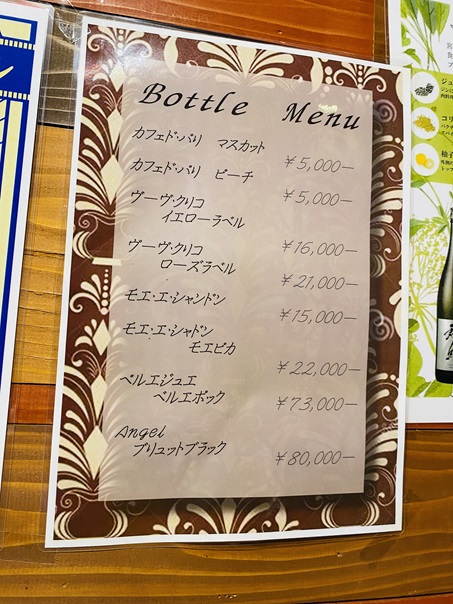 Bottle Menu
カフェ・ド・パリ マスカット ¥5,000—
カフェ・ド・パリ ピーチ ¥5,000—
ヴーヴ・クリコ
イエローラベル ¥16,000—
ヴーヴ・クリコ
ローズラベル ¥21,000—
モエ・エ・シャンドン ¥15,000—
モエ・エ・シャドン
モエピカ ¥22,000—
ベルエジュエ
ベルエポック ¥73,000—
Angel
ブリュットブラック ¥80,000—